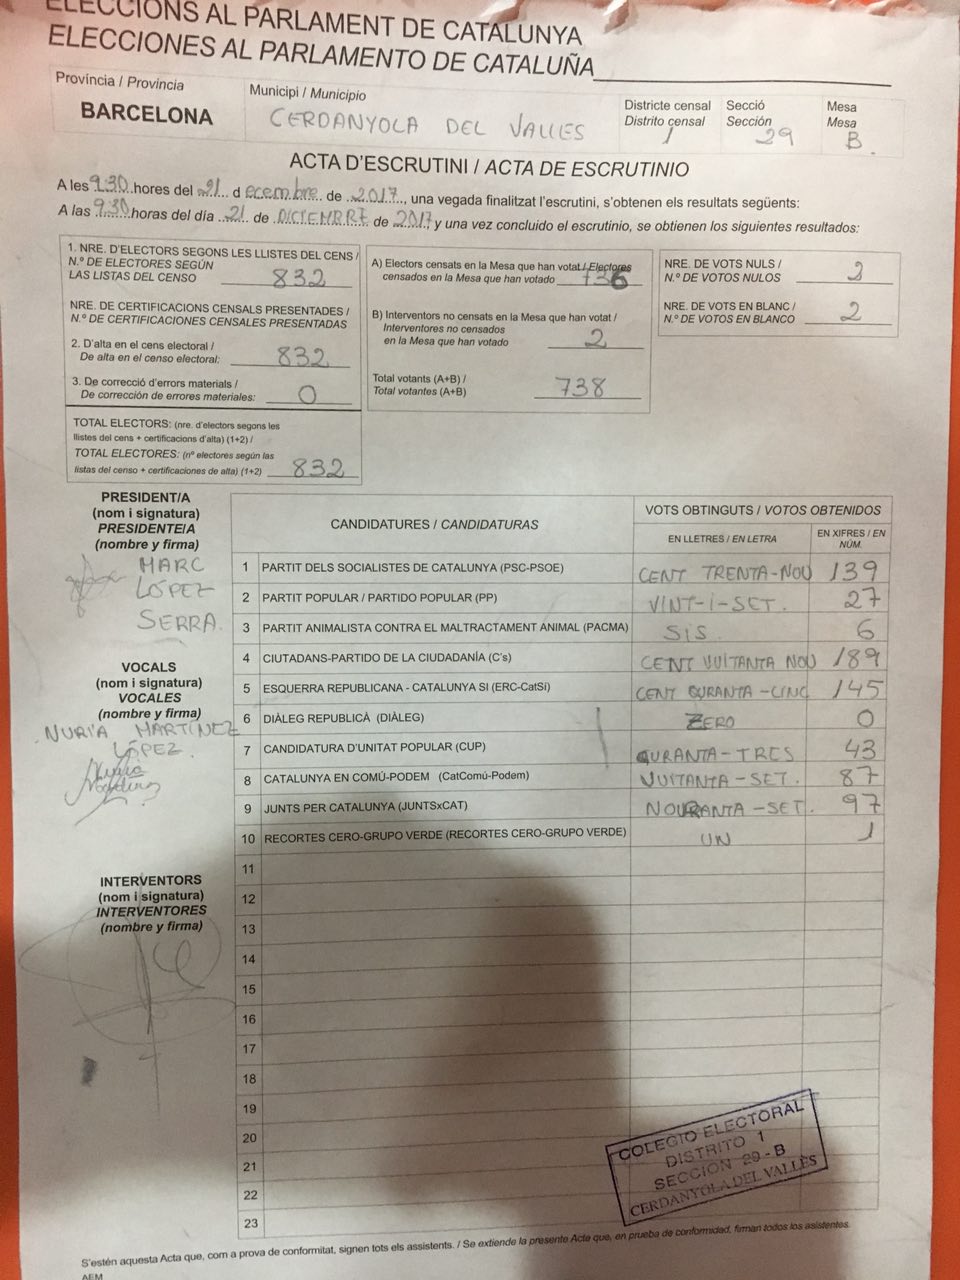 ELECCIONS AL PARLAMENT DE CATALUNYA
ELECCIONES AL PARLAMENTO DE CATALUÑA
Província / Provincia
BARCELONA
Municipi / Municipio
CERDANYOLA DEL VALLES
Districte censal
Distrito censal
1
Secció
Sección
29
Mesa
Mesa
B.
ACTA D'ESCRUTINI / ACTA DE ESCRUTINIO
A les 9:30 hores del 21 d ecembre de 2017, una vegada finalitzat l'escrutini, s'obtenen els resultats següents:
A las 9:30 horas del día 21 de DICIEMRRE de 2017 y una vez concluido el escrutinio, se obtienen los siguientes resultados:
1. NRE. D'ELECTORS SEGONS LES LLISTES DEL CENS /
N.º DE ELECTORES SEGÚN
LAS LISTAS DEL CENSO 832
NRE. DE CERTIFICACIONS CENSALS PRESENTADES /
N.º DE CERTIFICACIONES CENSALES PRESENTADAS
2. D'alta en el cens electoral /
De alta en el censo electoral: 832
3. De correcció d'errors materials /
De corrección de errores materiales: 0
TOTAL ELECTORS: (nre. d'electors segons les
llistes del cens + certificacions d'alta) (1+2) /
TOTAL ELECTORES: (nº electores según las
listas del censo + certificaciones de alta) (1+2) 832
A) Electors censats en la Mesa que han votat / Electores
censados en la Mesa que han votado 736
B) Interventors no censats en la Mesa que han votat /
Interventores no censados
en la Mesa que han votado 2
Total votants (A+B) /
Total votantes (A+B) 738
NRE. DE VOTS NULS /
N.º DE VOTOS NULOS 2
NRE. DE VOTS EN BLANC /
N.º DE VOTOS EN BLANCO 2
PRESIDENT/A
(nom i signatura)
PRESIDENTE/A
(nombre y firma)
MARC
LÓPEZ
SERRA.
VOCALS
(nom i signatura)
VOCALES
(nombre y firma)
NURIA MARTÍNEZ
LÓPEZ.
INTERVENTORS
(nom i signatura)
INTERVENTORES
(nombre y firma)
CANDIDATURES / CANDIDATURAS
VOTS OBTINGUTS / VOTOS OBTENIDOS
EN LLETRES / EN LETRA
EN XIFRES / EN
NÚM.
1 PARTIT DELS SOCIALISTES DE CATALUNYA (PSC-PSOE) CENT TRENTA-NOU 139
2 PARTIT POPULAR / PARTIDO POPULAR (PP) VINT-I-SET. 27
3 PARTIT ANIMALISTA CONTRA EL MALTRACTAMENT ANIMAL (PACMA) SIS. 6
4 CIUTADANS-PARTIDO DE LA CIUDADANÍA (C's) CENT VUITANTA NOU 189
5 ESQUERRA REPUBLICANA - CATALUNYA SI (ERC-CatSi) CENT QURANTA-CINC 145
6 DIÀLEG REPUBLICÀ (DIÀLEG) ZERO 0
7 CANDIDATURA D'UNITAT POPULAR (CUP) QURANTA-TRES 43
8 CATALUNYA EN COMÚ-PODEM (CatComú-Podem) VUITANTA-SET. 87
9 JUNTS PER CATALUNYA (JUNTSxCAT) NOURANTA-SET. 97
10 RECORTES CERO-GRUPO VERDE (RECORTES CERO-GRUPO VERDE) UN 1
11
12
13
14
15
16
17
18
19
20
21
22
23
COLEGIO ELECTORAL
DISTRITO 1
SECCION 29 - B
CERDANYOLA DEL VALLÈS
S'estén aquesta Acta que, com a prova de conformitat, signen tots els assistents. / Se extiende la presente Acta que, en prueba de conformidad, firman todos los asistentes.
AEM